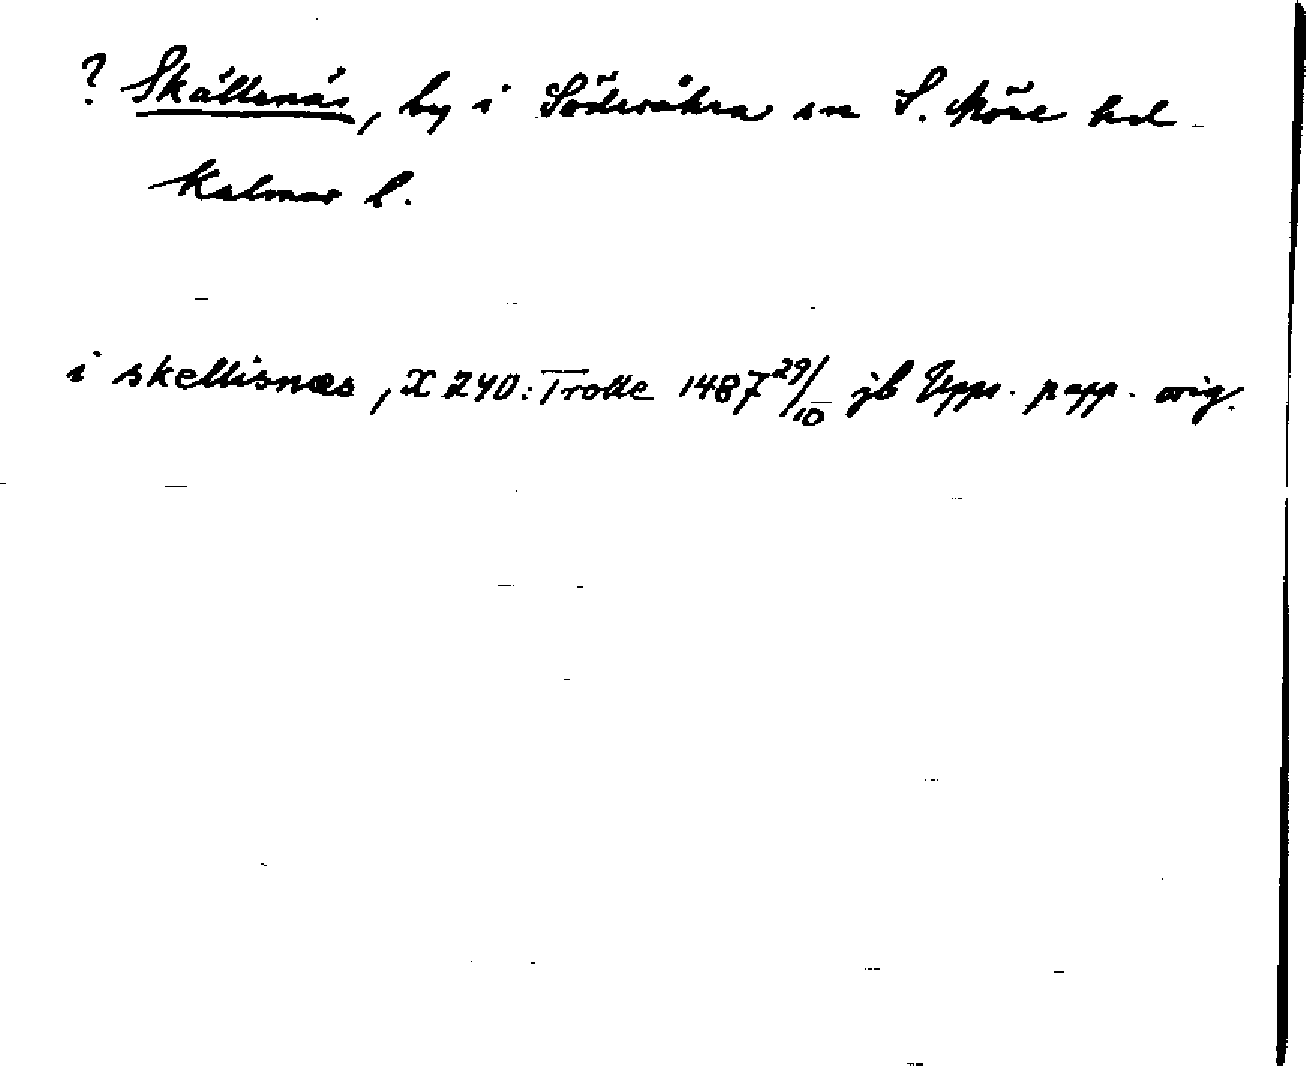 ? Skällenäs, by i Söderåkra sn S. Möre hd
Kalmar l.
i skellisnæs, X 240: Trolle 1487 29/10 jb Upps. papp. orig.